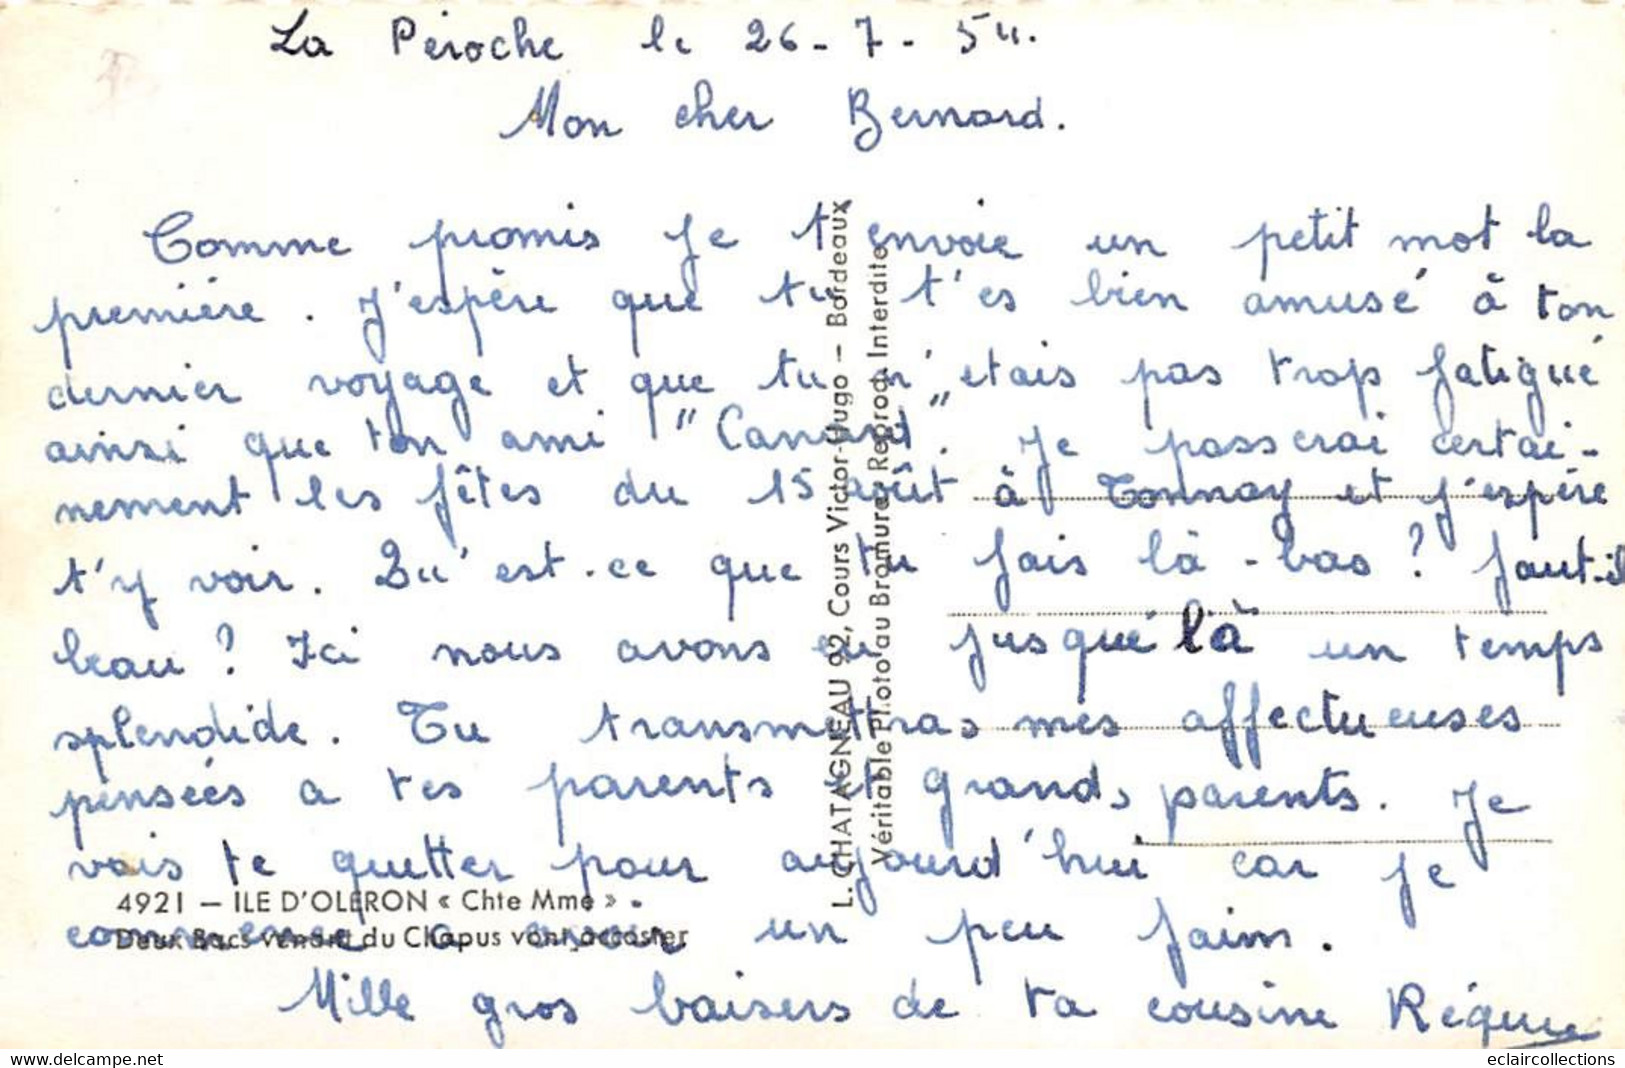 La Péroche le 26-7-54.
Mon cher Bernard.
Comme promis je t'envoie un petit mot la
première. J'espère que tu t'es bien amusé à ton
dernier voyage et que tu n'étais pas trop fatigué
ainsi que ton ami "Canard". Je passerai certai-
nement les fêtes du 15 août à Tonnay et j'espère
t'y voir. Qu'est-ce que tu fais là-bas ? faut-il
beau ? Ici nous avons eu jusque là un temps
splendide. Tu transmettras mes affectueuses
pensées a tes parents et grands parents. Je
vais te quetter pour aujourd'hui car je
commence a avoir un peu faim.
Mille gros baisers de ta cousine
4921 — ILE D'OLERON « Chte Mme » .
Deux Bacs venant du Chapus vont accoster
L. CHATAGNEAU 92, Cours Victor-Hugo — Bordeaux
Véritable Photo au Bromure - Reprod. Interdite
eclaircollections